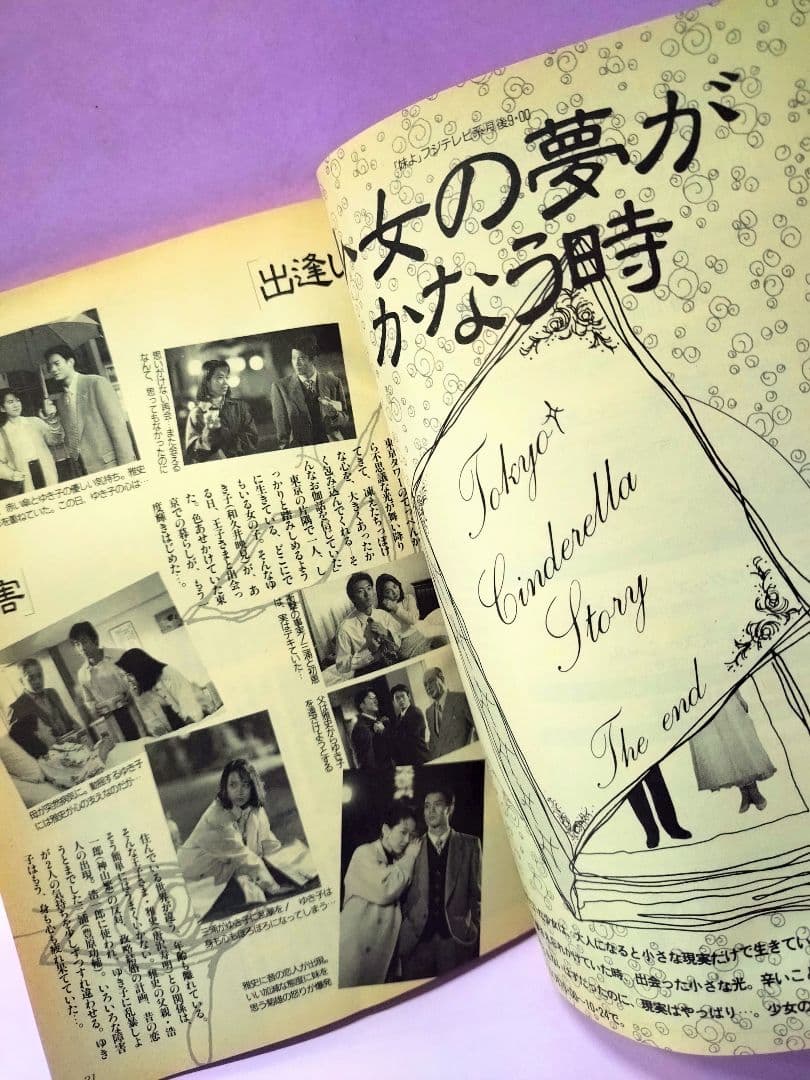 「妹よ」フジテレビ系月後9・00
少女の夢が
かなう時
Tokyo
Cinderella
Story
The end
「出逢い
思いがけない再会…また会える
なんて、思ってもなかったのに
赤い傘とゆき子の優しい気持ち。雅史
を重ねていた。この日、ゆき子の心は…
東京タワーのてっぺんか
ら不思議な光が舞い降り
てきて、凍えたちっぽけ
な心を、大きくあったか
く包み込んでくれる…そ
んなお伽話を信じていた
東京の片隅で一人、し
っかりと踏みしめるよう
に生きている、どこにで
もいる女の子。そんなゆ
き子(和久井映見)が、あ
る日、王子さまと出会っ
た。色あせかけていた東
京での暮らしが、もう一
度輝きはじめた…。
害」
衝撃の事実!三浦と初恵
は、実はデキていた…
父は雅史からゆき子
を遠ざけようとする
母が突然病気に。動揺するゆき子
には雅史が心の支えなのだが…
三浦がゆき子に乱暴を!ゆき子は
身も心もぼろぼろになってしまう…
雅史に昔の恋人が出現。
いい加減な態度に妹を
思う菊雄の怒りが爆発
住んでいる世界が違う。年齢も離れている。
そんな王子さま・雅史(唐沢寿明)との関係は、
そう簡単にはうまくいかない。雅史の父親・浩
一郎(神山繁)の反対、政略結婚の計画、昔の恋
人の出現。浩一郎に使われ、ゆき子に乱暴しよ
うとまでした三浦(豊原功補)。いろいろな障害
が2人の気持ちを少しずつすれ違わせる。ゆき
子はもう、身も心も疲れ果てていた…。
少女は、大人になると小さな現実だけで生きてい
忘れかけていた時、出会った小さな光。辛いこ
はずだったのに、現実はやっぱり…。少女の
10・24で。
21